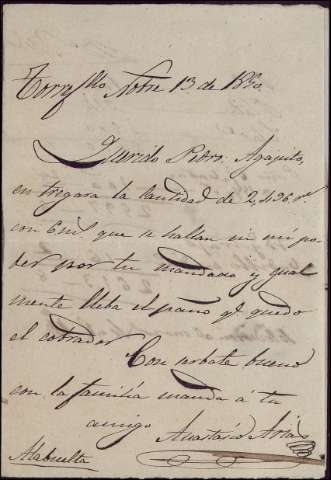 Torrjllo Nobre 13 de 1880.
Querido Pedro: Agapito,
en tregara la Cantidad de 2,436. r.
con 6 mil que se hallan en mi po-
der por tu mandado y igual
mente lleba el paño qe quedo
el cobrador Con serbate bueno
con la familia manda á tu
amigo Anastasio Arias
Alabuelta